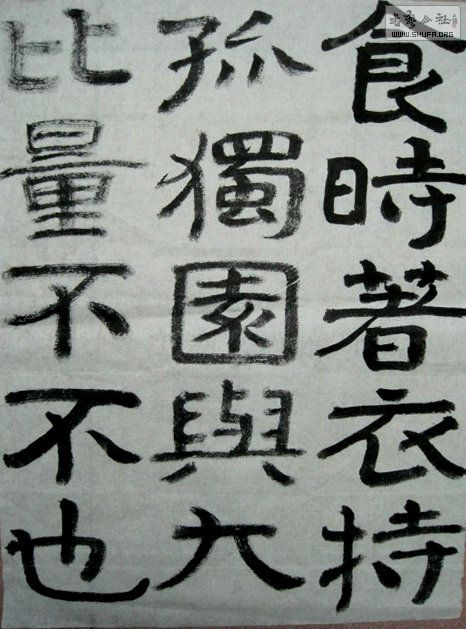 食時著衣持
孤獨園與大
比量不不也
WWW.SHUFA.ORG